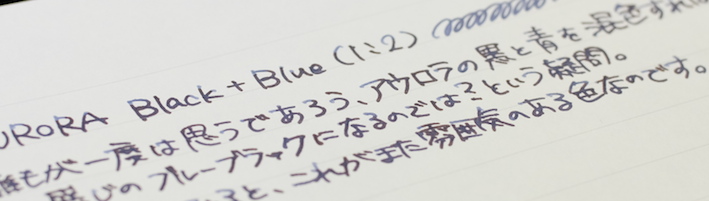 URORA Black + Blue (1:2)
誰もが一度は思うであろう、アウロラの黒と青を混色すれ
感じのブルーブラックになるのでは?という疑問。
ると、これがまた雰囲気のある色なのです。